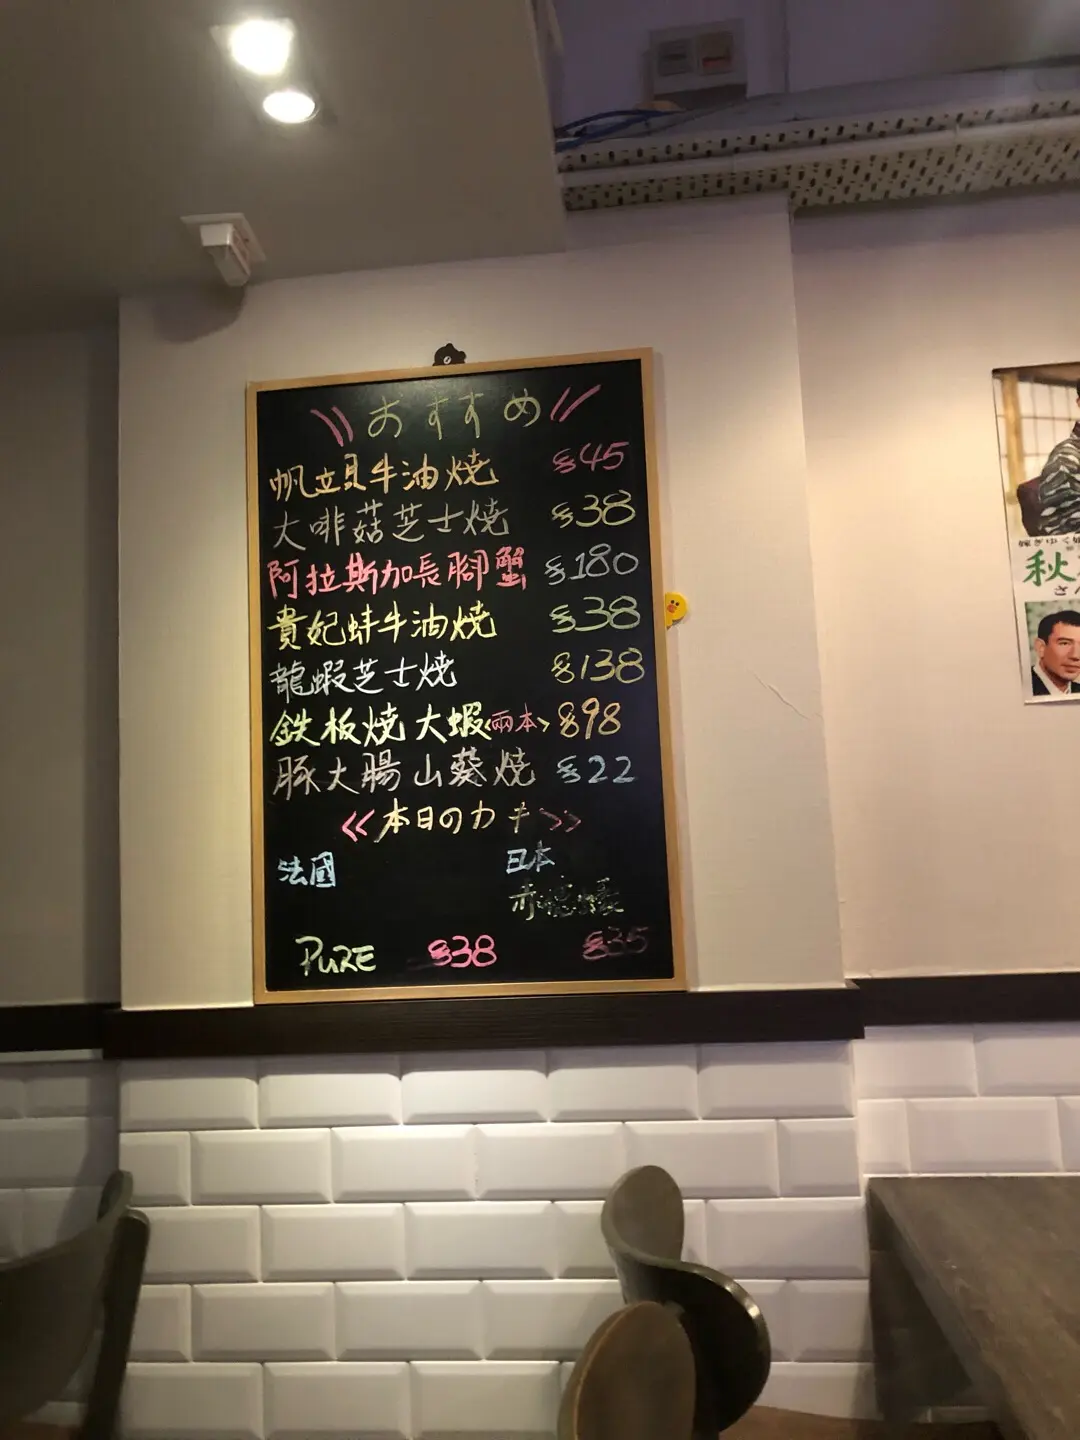 おすすめ
帆立貝牛油燒 $45
大啡菇芝士燒 $38
阿拉斯加長腳蟹 $180
貴妃蚌牛油燒 $38
龍蝦芝士燒 $138
鉄板燒大蝦<兩本> $98
豚大腸山葵燒 $22
<<本日のカキ>>
法國 日本
赤穗蠔
PURE $38 $35
嫁ぎゆく娘
秋
さん